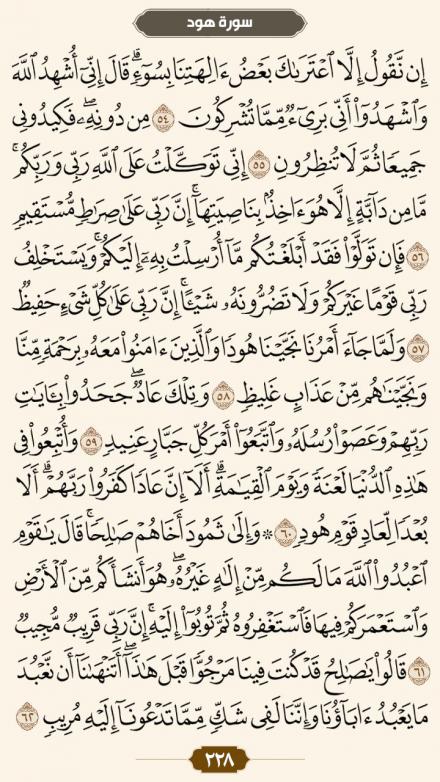 سورة هود
إِن نَّقُولُ إِلَّا ٱعْتَرَىٰكَ بَعْضُ ءَالِهَتِنَا بِسُوٓءٍۗ قَالَ إِنِّىٓ أُشْهِدُ ٱللَّهَ
وَٱشْهَدُوٓا۟ أَنِّى بَرِىٓءٌ مِّمَّا تُشْرِكُونَ ٥٤ مِن دُونِهِۦۖ فَكِيدُونِى
جَمِيعًا ثُمَّ لَا تُنظِرُونِ ٥٥ إِنِّى تَوَكَّلْتُ عَلَى ٱللَّهِ رَبِّى وَرَبِّكُمۚ
مَّا مِن دَآبَّةٍ إِلَّا هُوَ ءَاخِذٌۢ بِنَاصِيَتِهَآۚ إِنَّ رَبِّى عَلَىٰ صِرَٰطٍ مُّسْتَقِيمٍ
٥٦ فَإِن تَوَلَّوْا۟ فَقَدْ أَبْلَغْتُكُم مَّآ أُرْسِلْتُ بِهِۦٓ إِلَيْكُمْۚ وَيَسْتَخْلِفُ
رَبِّى قَوْمًا غَيْرَكُمْ وَلَا تَضُرُّونَهُۥ شَيْـًٔاۚ إِنَّ رَبِّى عَلَىٰ كُلِّ شَىْءٍ حَفِيظٌ
٥٧ وَلَمَّا جَآءَ أَمْرُنَا نَجَّيْنَا هُودًا وَٱلَّذِينَ ءَامَنُوا۟ مَعَهُۥ بِرَحْمَةٍ مِّنَّا
وَنَجَّيْنَٰهُم مِّنْ عَذَابٍ غَلِيظٍ ٥٨ وَتِلْكَ عَادٌۖ جَحَدُوا۟ بِـَٔايَٰتِ
رَبِّهِمْ وَعَصَوْا۟ رُسُلَهُۥ وَٱتَّبَعُوٓا۟ أَمْرَ كُلِّ جَبَّارٍ عَنِيدٍ ٥٩ وَأُتْبِعُوا۟ فِى
هَٰذِهِ ٱلدُّنْيَا لَعْنَةً وَيَوْمَ ٱلْقِيَٰمَةِۗ أَلَآ إِنَّ عَادًا كَفَرُوا۟ رَبَّهُمْۗ أَلَا
بُعْدًا لِّعَادٍ قَوْمِ هُودٍ ٦٠ ۞ وَإِلَىٰ ثَمُودَ أَخَاهُمْ صَٰلِحًاۚ قَالَ يَٰقَوْمِ
ٱعْبُدُوا۟ ٱللَّهَ مَا لَكُم مِّنْ إِلَٰهٍ غَيْرُهُۥۖ هُوَ أَنشَأَكُم مِّنَ ٱلْأَرْضِ
وَٱسْتَعْمَرَكُمْ فِيهَا فَٱسْتَغْفِرُوهُ ثُمَّ تُوبُوٓا۟ إِلَيْهِۚ إِنَّ رَبِّى قَرِيبٌ مُّجِيبٌ
٦١ قَالُوا۟ يَٰصَٰلِحُ قَدْ كُنتَ فِينَا مَرْجُوًّا قَبْلَ هَٰذَآۖ أَتَنْهَىٰنَآ أَن نَّعْبُدَ
مَا يَعْبُدُ ءَابَآؤُنَا وَإِنَّنَا لَفِى شَكٍّ مِّمَّا تَدْعُونَآ إِلَيْهِ مُرِيبٍ ٦٢
٢٢٨